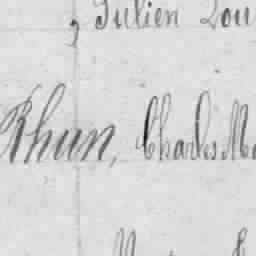 , Julien Lou
Rhun, Charles Ma